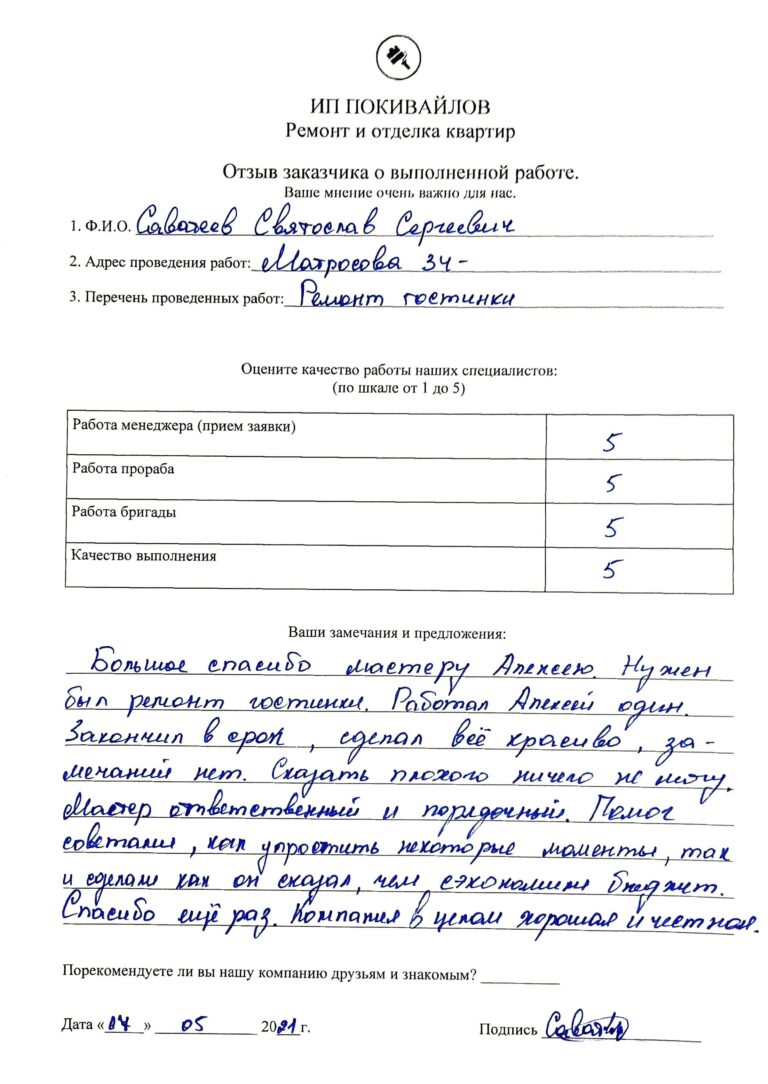 ИП ПОКИВАЙЛОВ
Ремонт и отделка квартир
Отзыв заказчика о выполненной работе.
Ваше мнение очень важно для нас.
1. Ф.И.О. Саватеев Святослав Сергеевич
2. Адрес проведения работ: Матросова 34 -
3. Перечень проведенных работ: Ремонт гостинки
Оцените качество работы наших специалистов:
(по шкале от 1 до 5)
Работа менеджера (прием заявки) 5
Работа прораба 5
Работа бригады 5
Качество выполнения 5
Ваши замечания и предложения:
Большое спасибо мастеру Алексею. Нужен
был ремонт гостинки. Работал Алексей один.
Закончил в срок, сделал всё красиво, за-
мечаний нет. Сказать плохого ничего не могу.
Мастер ответственный и порядочный. Помог
советами, как упростить некоторые моменты, так
и сделали как он сказал, чем сэкономили бюджет.
Спасибо ещё раз. Компания в целом хорошая и честная.
Порекомендуете ли вы нашу компанию друзьям и знакомым?
Дата « » 05 2021 г. Подпись